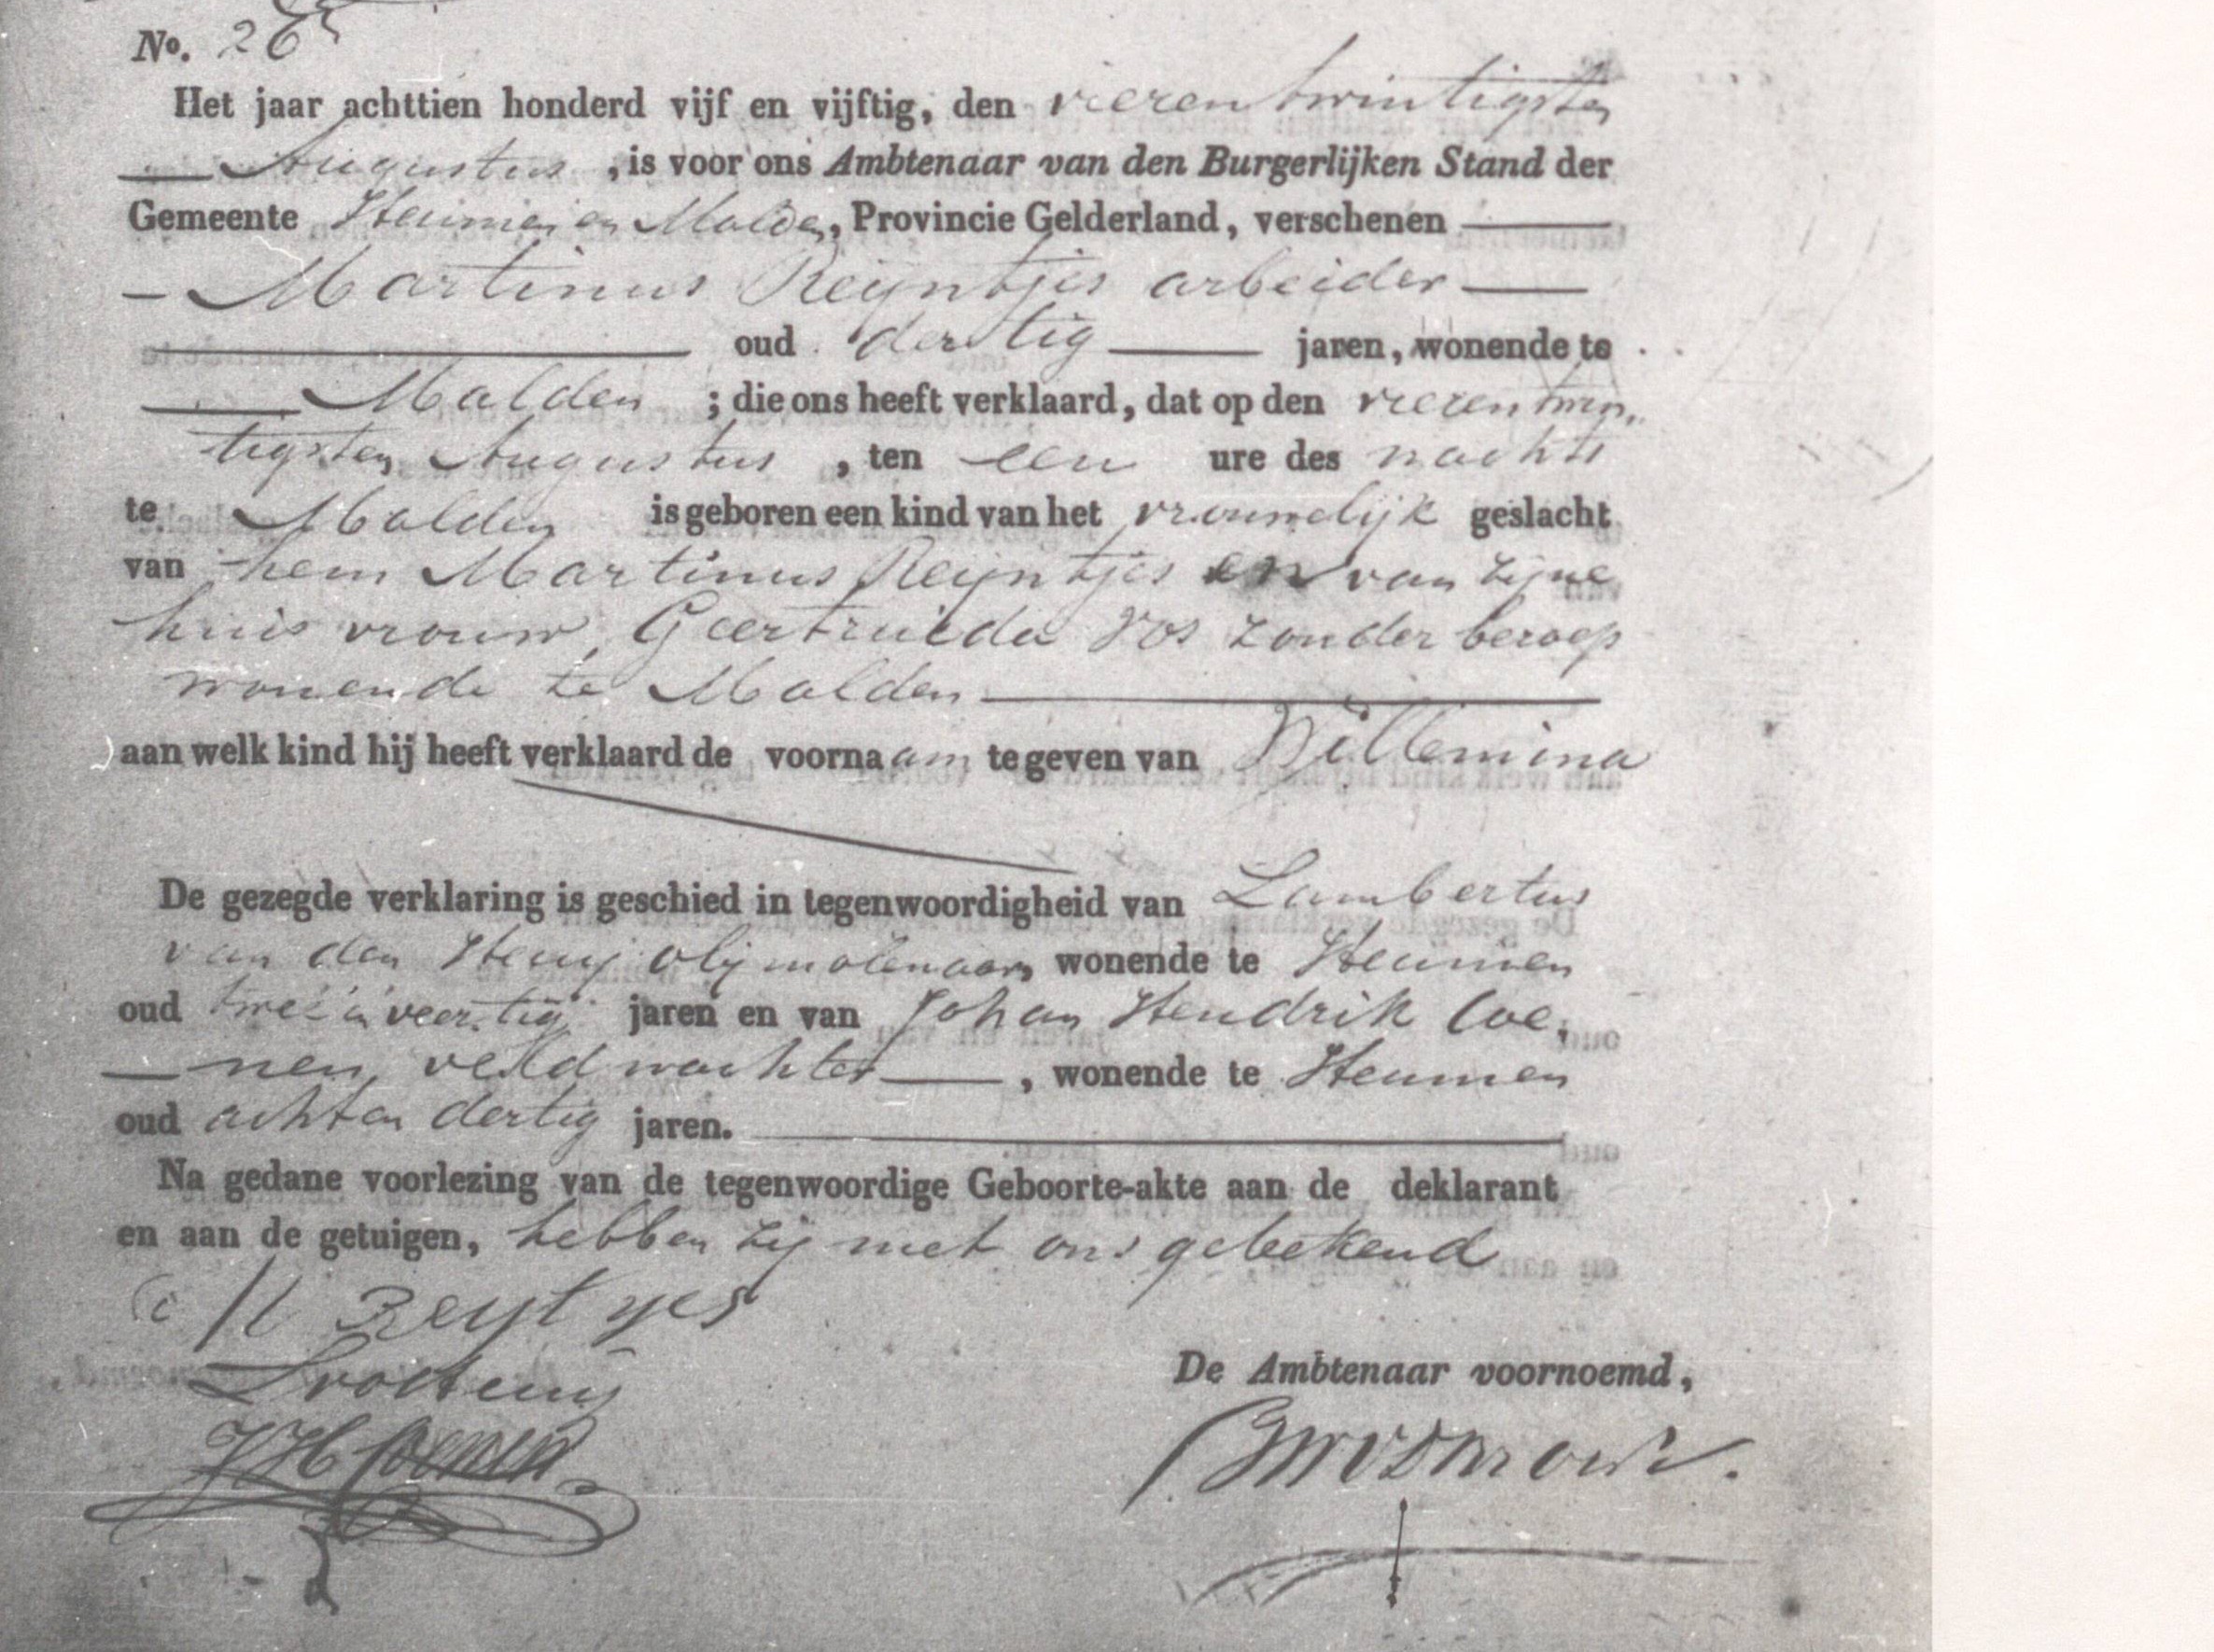 No. 26
Het jaar achttien honderd vijf en vijftig, den vierentwintigsten
Augustus, is voor ons Ambtenaar van den Burgerlijken Stand der
Gemeente Heumen en Malden, Provincie Gelderland, verschenen
Martinus Reijntjes arbeider
oud dertig jaren, wonende te
Malden; die ons heeft verklaard, dat op den vierentwin„
tigsten Augustus, ten een ure des nachts
te Malden is geboren een kind van het vrouwelijk geslacht
van hem Martinus Reijntjes en van zijne
huisvrouw, Geertruida Vos zonder beroep
wonende te Malden
aan welk kind hij heeft verklaard de voornaam te geven van Willemina
De gezegde verklaring is geschied in tegenwoordigheid van Lambertus
van den Heuij olijmolenaar, wonende te Heumen
oud twee en veertig jaren en van Johan Hendrik Coe„
nen, veldwachter, wonende te Heumen
oud achten dertig jaren.
Na gedane voorlezing van de tegenwoordige Geboorte-akte aan de deklarant
en aan de getuigen, hebben zij met ons geteekend
M Reytyes
JH Coenen
De Ambtenaar voornoemd,